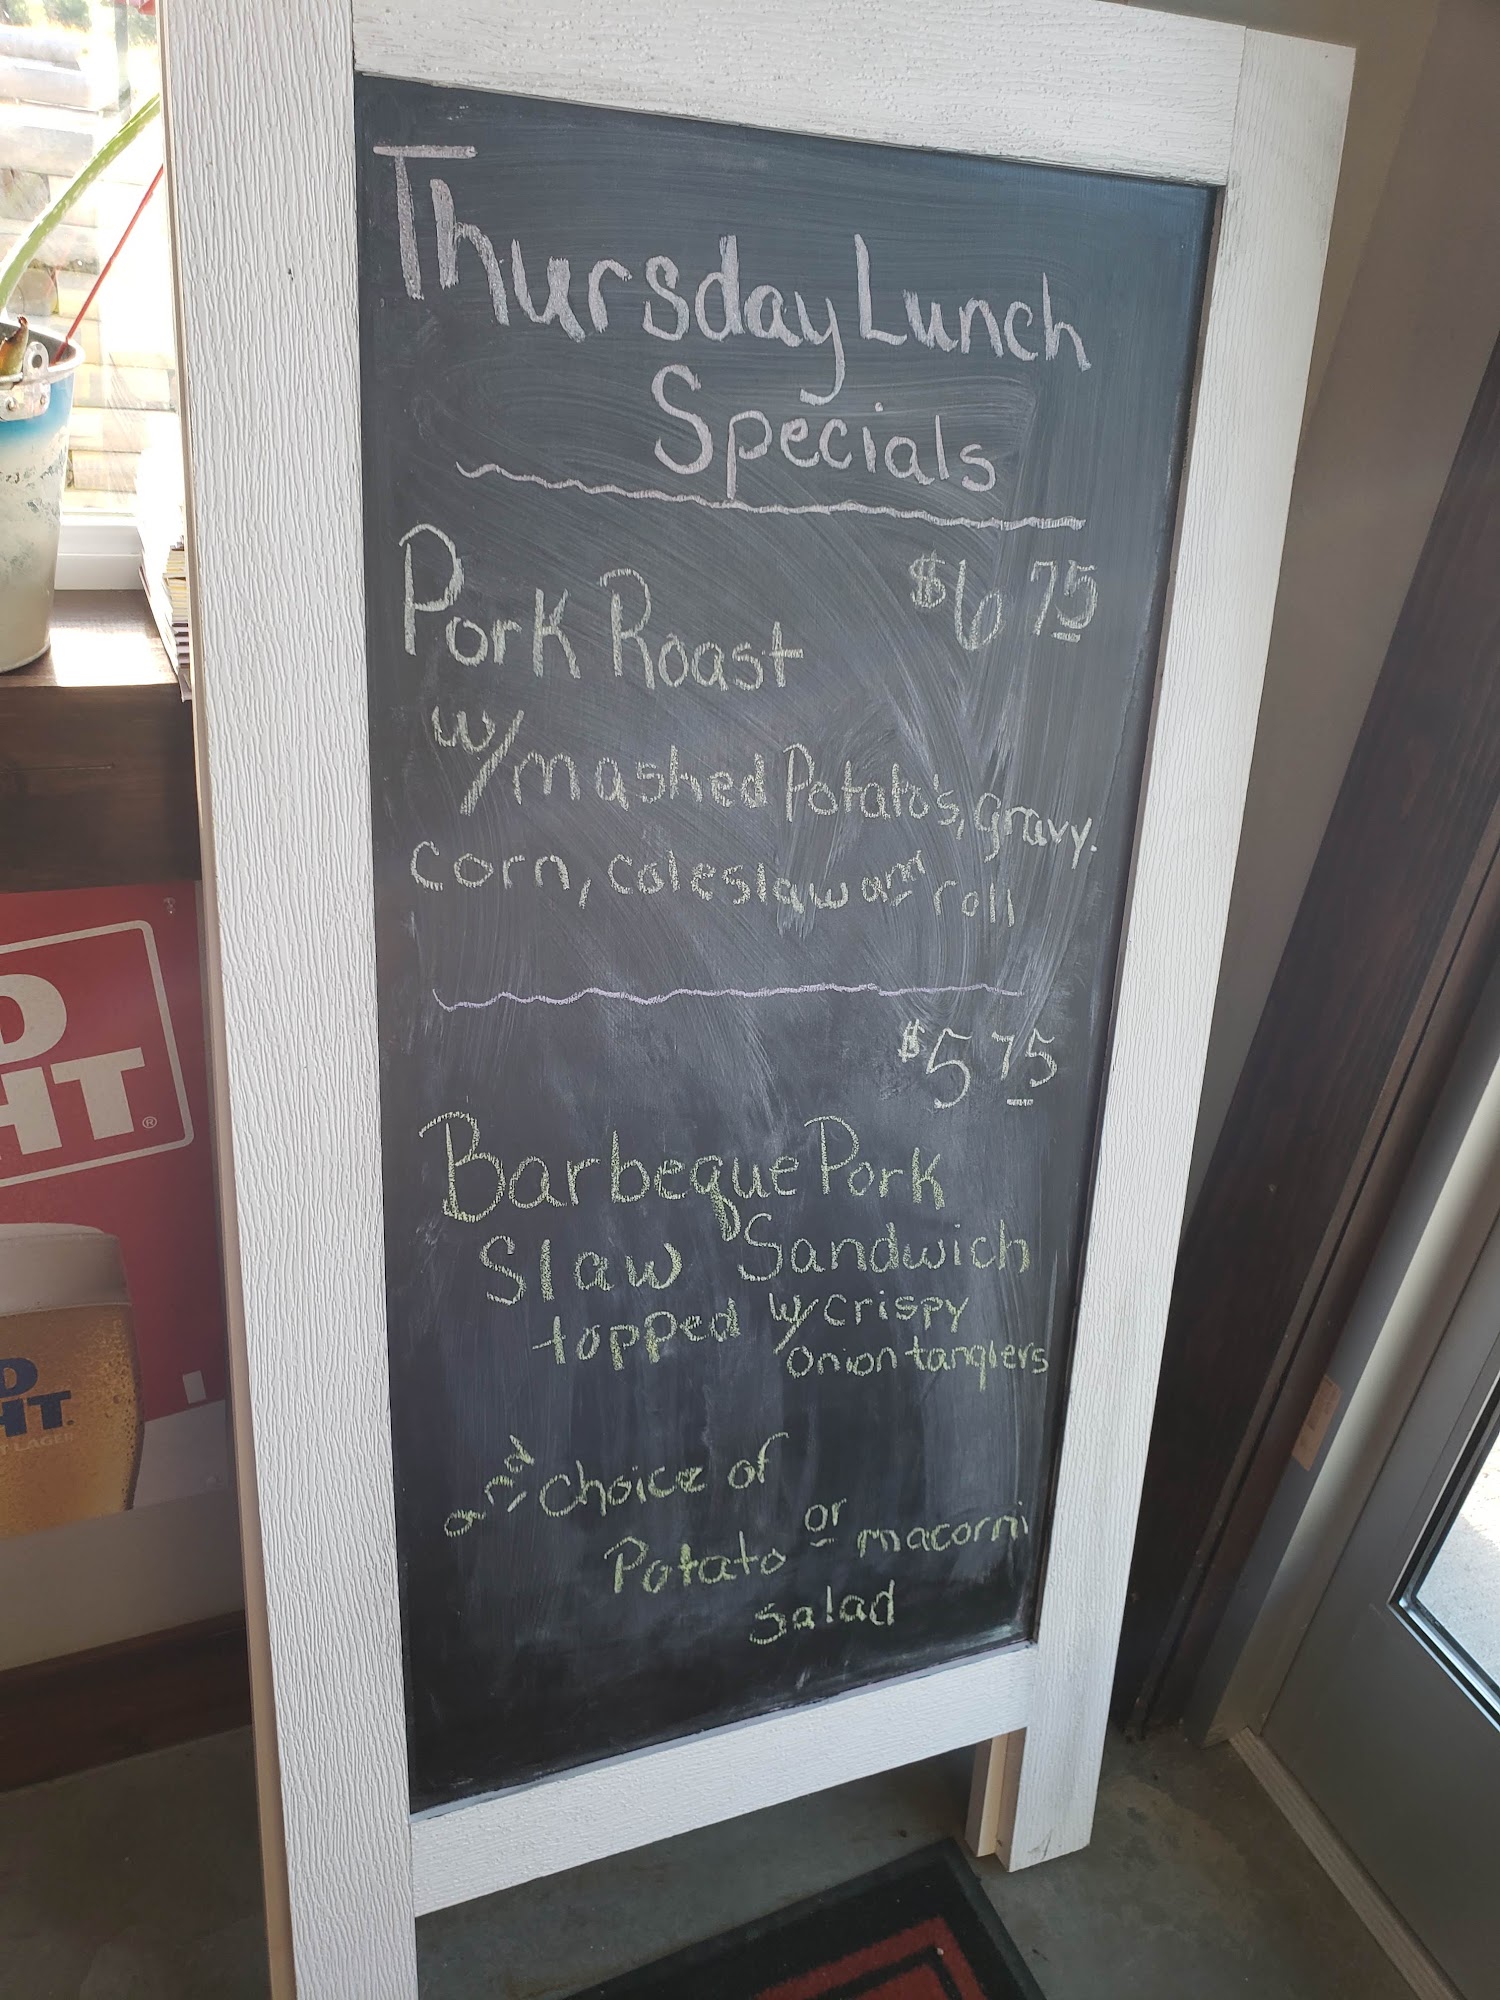 Thursday Lunch
Specials
$6 75
Pork Roast
w/mashed Potato's, gravy.
corn, coleslaw and roll
$5 75
Barbeque Pork
Slaw Sandwich
topped w/crispy
onion tanglers
and Choice of
Potato or macorni
salad
D
HT®
D
HT.
T LAGER